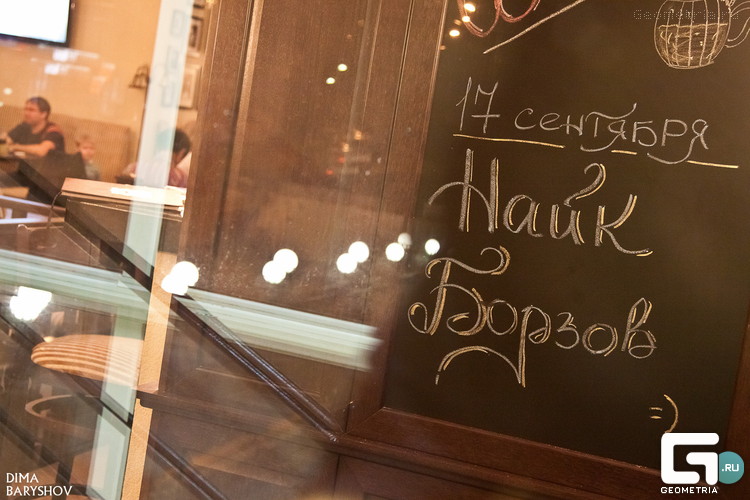 Geometria.ru
17 сентября
Найк
Борзов
=)
G .RU
GEOMETRIA
DIMA
BARYSHOV